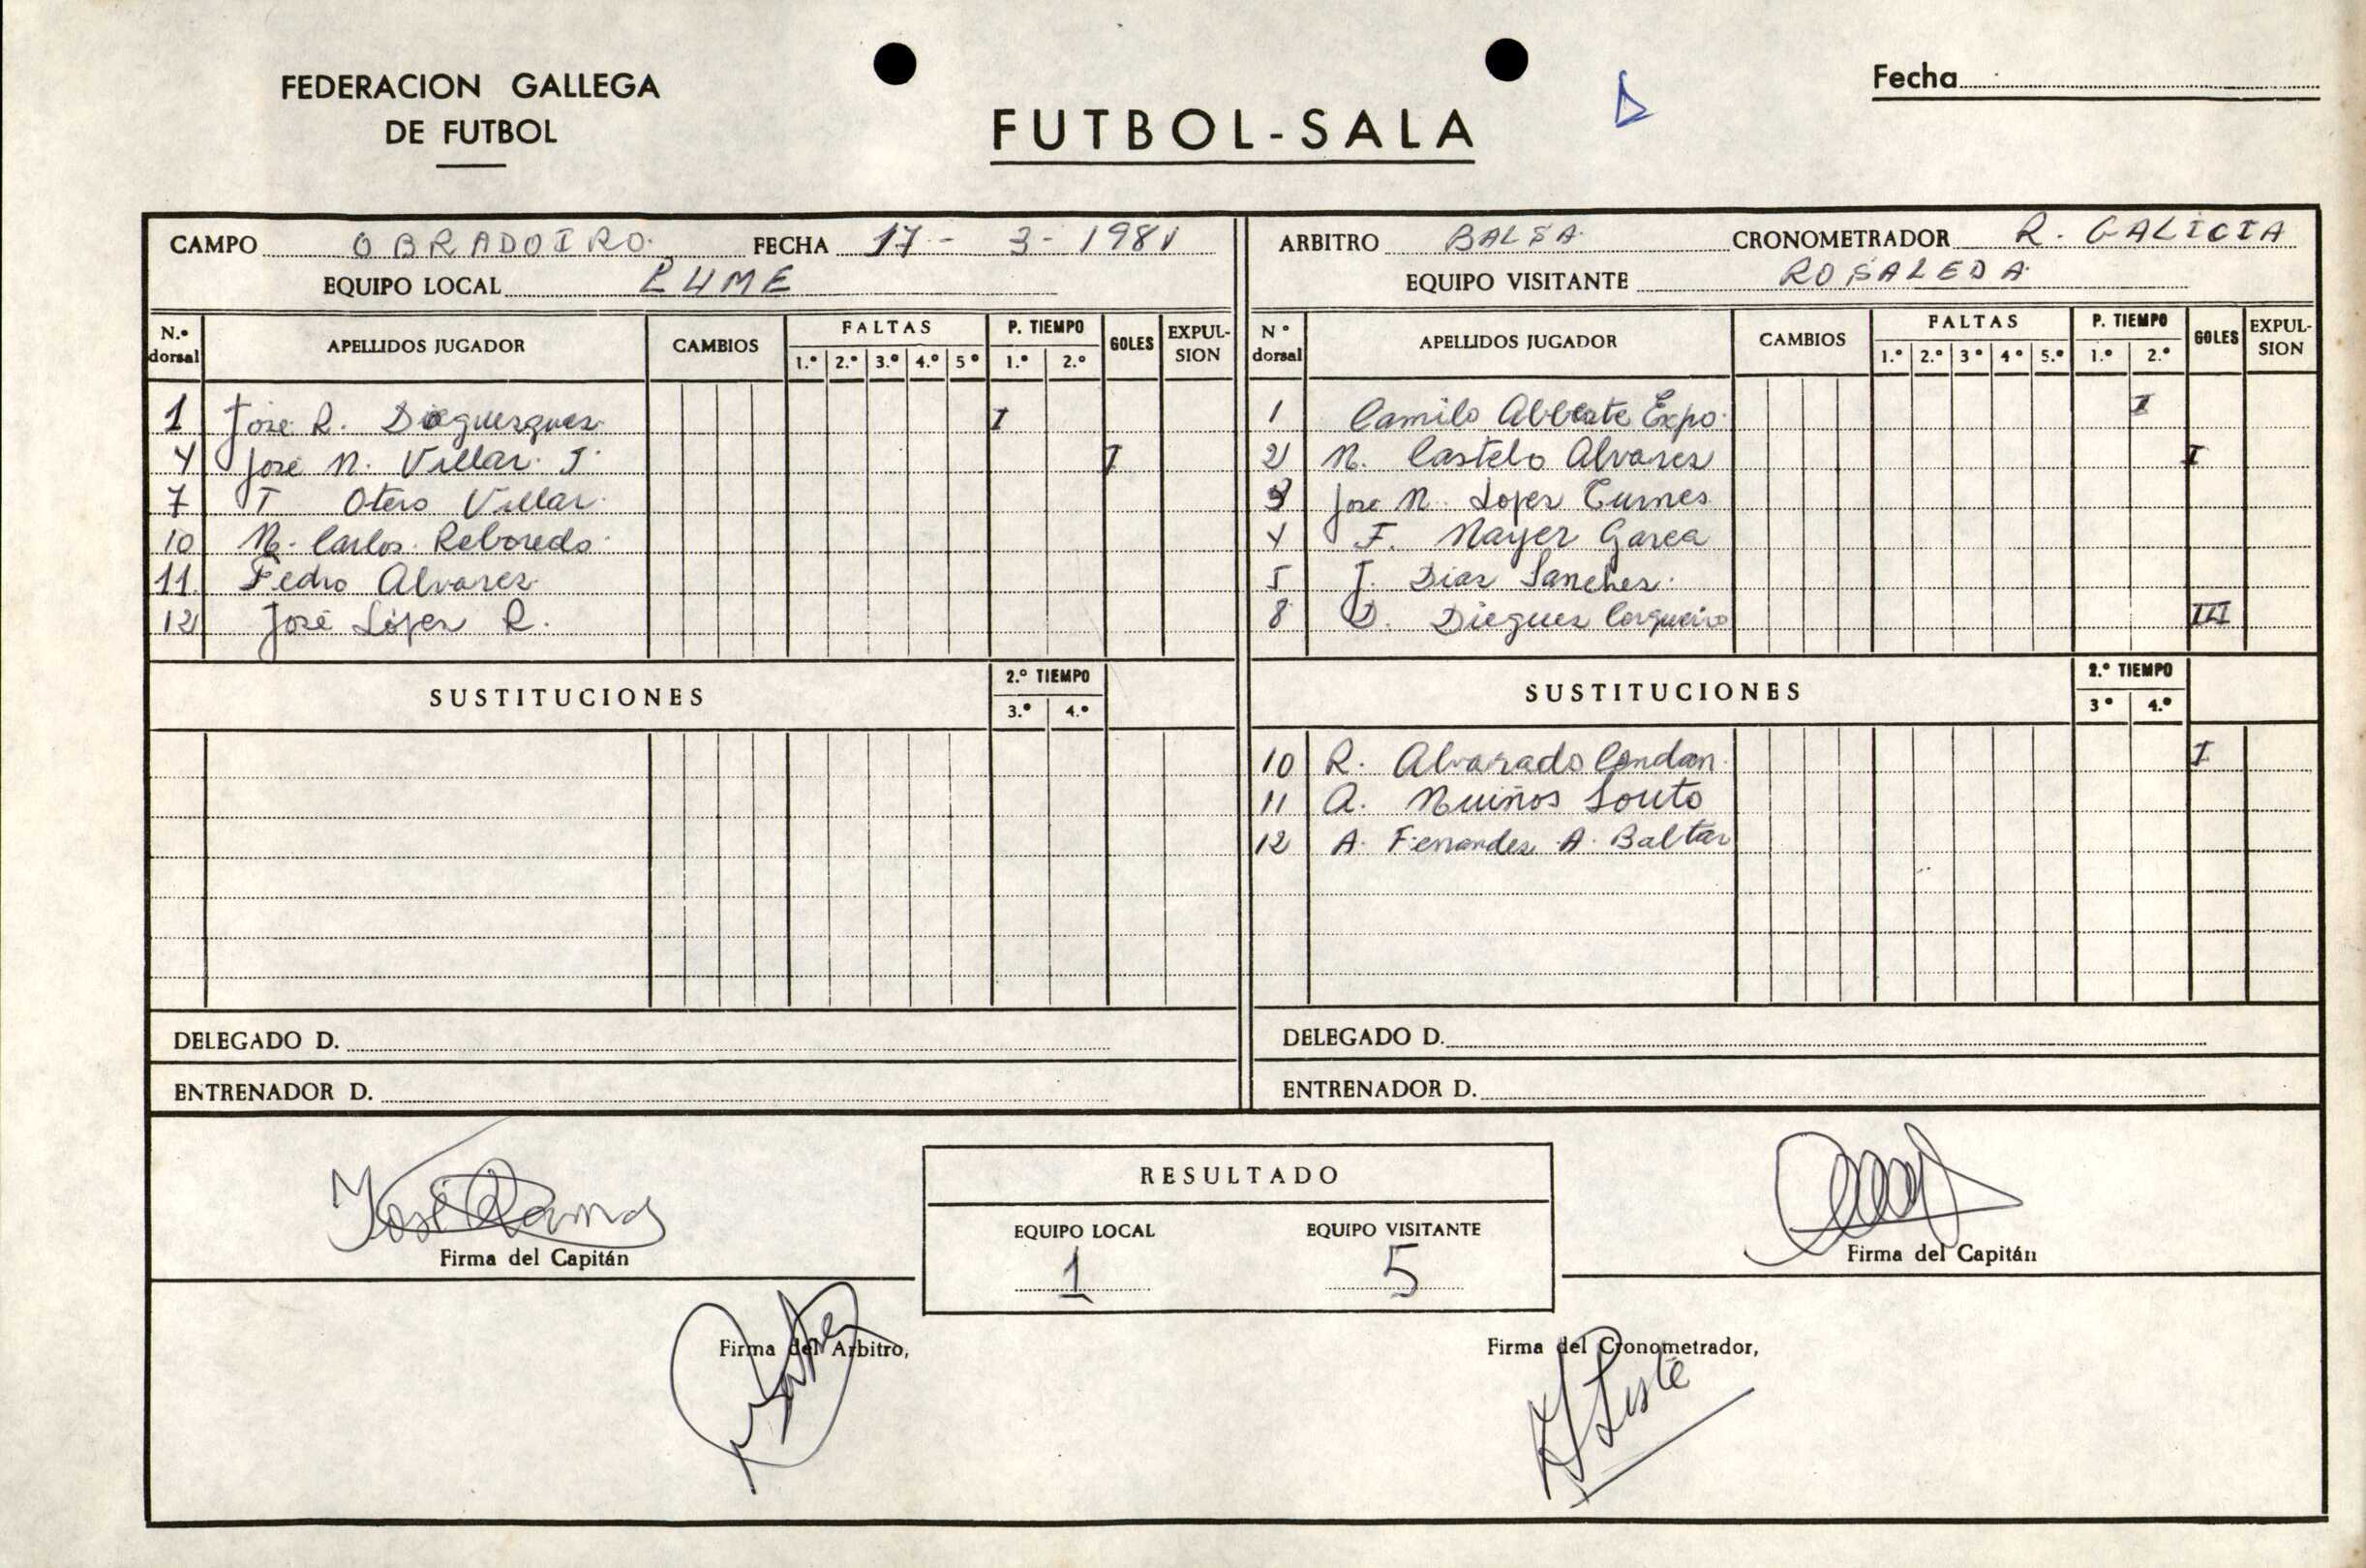 FEDERACION GALLEGA
DE FUTBOL
FUTBOL-SALA
Fecha
CAMPO OBRADOIRO FECHA 17-3-1981
EQUIPO LOCAL LUME
N.º dorsal APELLIDOS JUGADOR CAMBIOS FALTAS 1.º 2.º 3.º 4.º 5º P. TIEMPO 1.º 2.º GOLES EXPUL-SION
1 Jose R. I
4 Jose M. Villar J. I
7 J Otero Villar
10 M. Carlos Reboredo
11 Pedro Alvarez
12 José López R.
SUSTITUCIONES 2.º TIEMPO 3.º 4.º
DELEGADO D.
ENTRENADOR D.
ARBITRO BALSA CRONOMETRADOR R. GALICIA
EQUIPO VISITANTE ROSALEDA
Nº dorsal APELLIDOS JUGADOR CAMBIOS FALTAS 1.º 2.º 3º 4º 5.º P. TIEMPO 1.º 2.º GOLES EXPUL-SION
1 Camilo Expo. I
2 M. Castelo Alvarez I
3 Jose M. Lopez Turnes
4 F. Mayer Garca
5 J. Diaz Sanchez
8 D. Dieguez Cerqueiro III
SUSTITUCIONES 2.º TIEMPO 3º 4.º
10 R. Alvarado Condan I
11 A. Muiños Souto
12 A. Fernandez A. Baltar
DELEGADO D.
ENTRENADOR D.
José Ramos
Firma del Capitán
RESULTADO
EQUIPO LOCAL EQUIPO VISITANTE
1 5
Firma del Capitán
Firma del Arbitro,
Firma del Cronometrador,